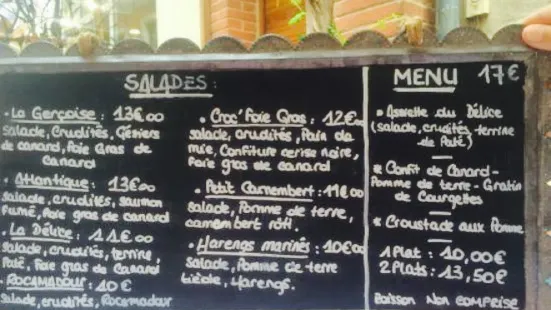 SALADES:
• La Gerçoise : 13€00
Salade, Crudités, Gésiers
de canard, Foie Gras de
canard
• Atlantique : 13€00
salade, crudités, saumon
fumé, foie gras de canard
• La Délice : 11€00
Salade, crudités, terrine,
Paté, foie gras de canard
• ROCAMADOUR : 10€
Salade, crudités, Rocamadour
• Croc'foie Gras : 12€00
salade, crudités, Pain de
mie, Confiture cerise noire,
Foie gras de canard
• Petit Camembert : 11€00
salade, Pomme de terre,
camembert rôti.
• Harengs marinés : 10€00
salade, Pomme de terre
tiède, Harengs.
MENU 17€
* Assiette du Délice
(salade, crudités, terrine
de Paté)
* Confit de Canard -
Pomme de terre - Gratin
de Courgettes
* Croustade aux Pomme
1 Plat : 10,00€
2 Plats : 13,50€
Boisson NON COMPRISE